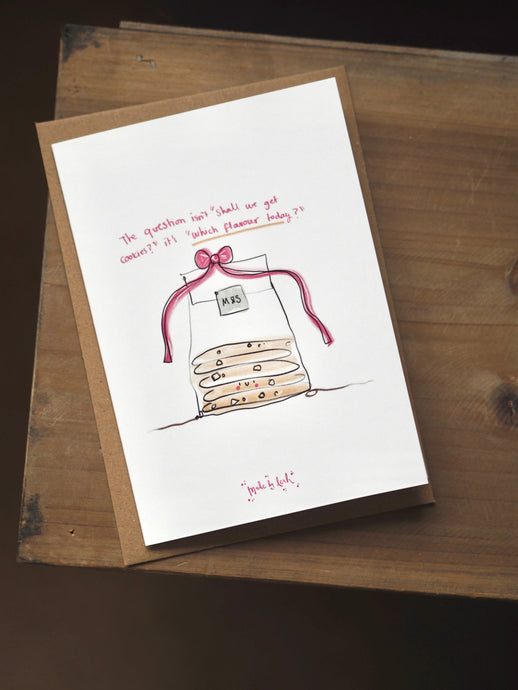 The question isn't "shall we get
cookies?" it's "which flavour today?"
M&S
Made by Leah